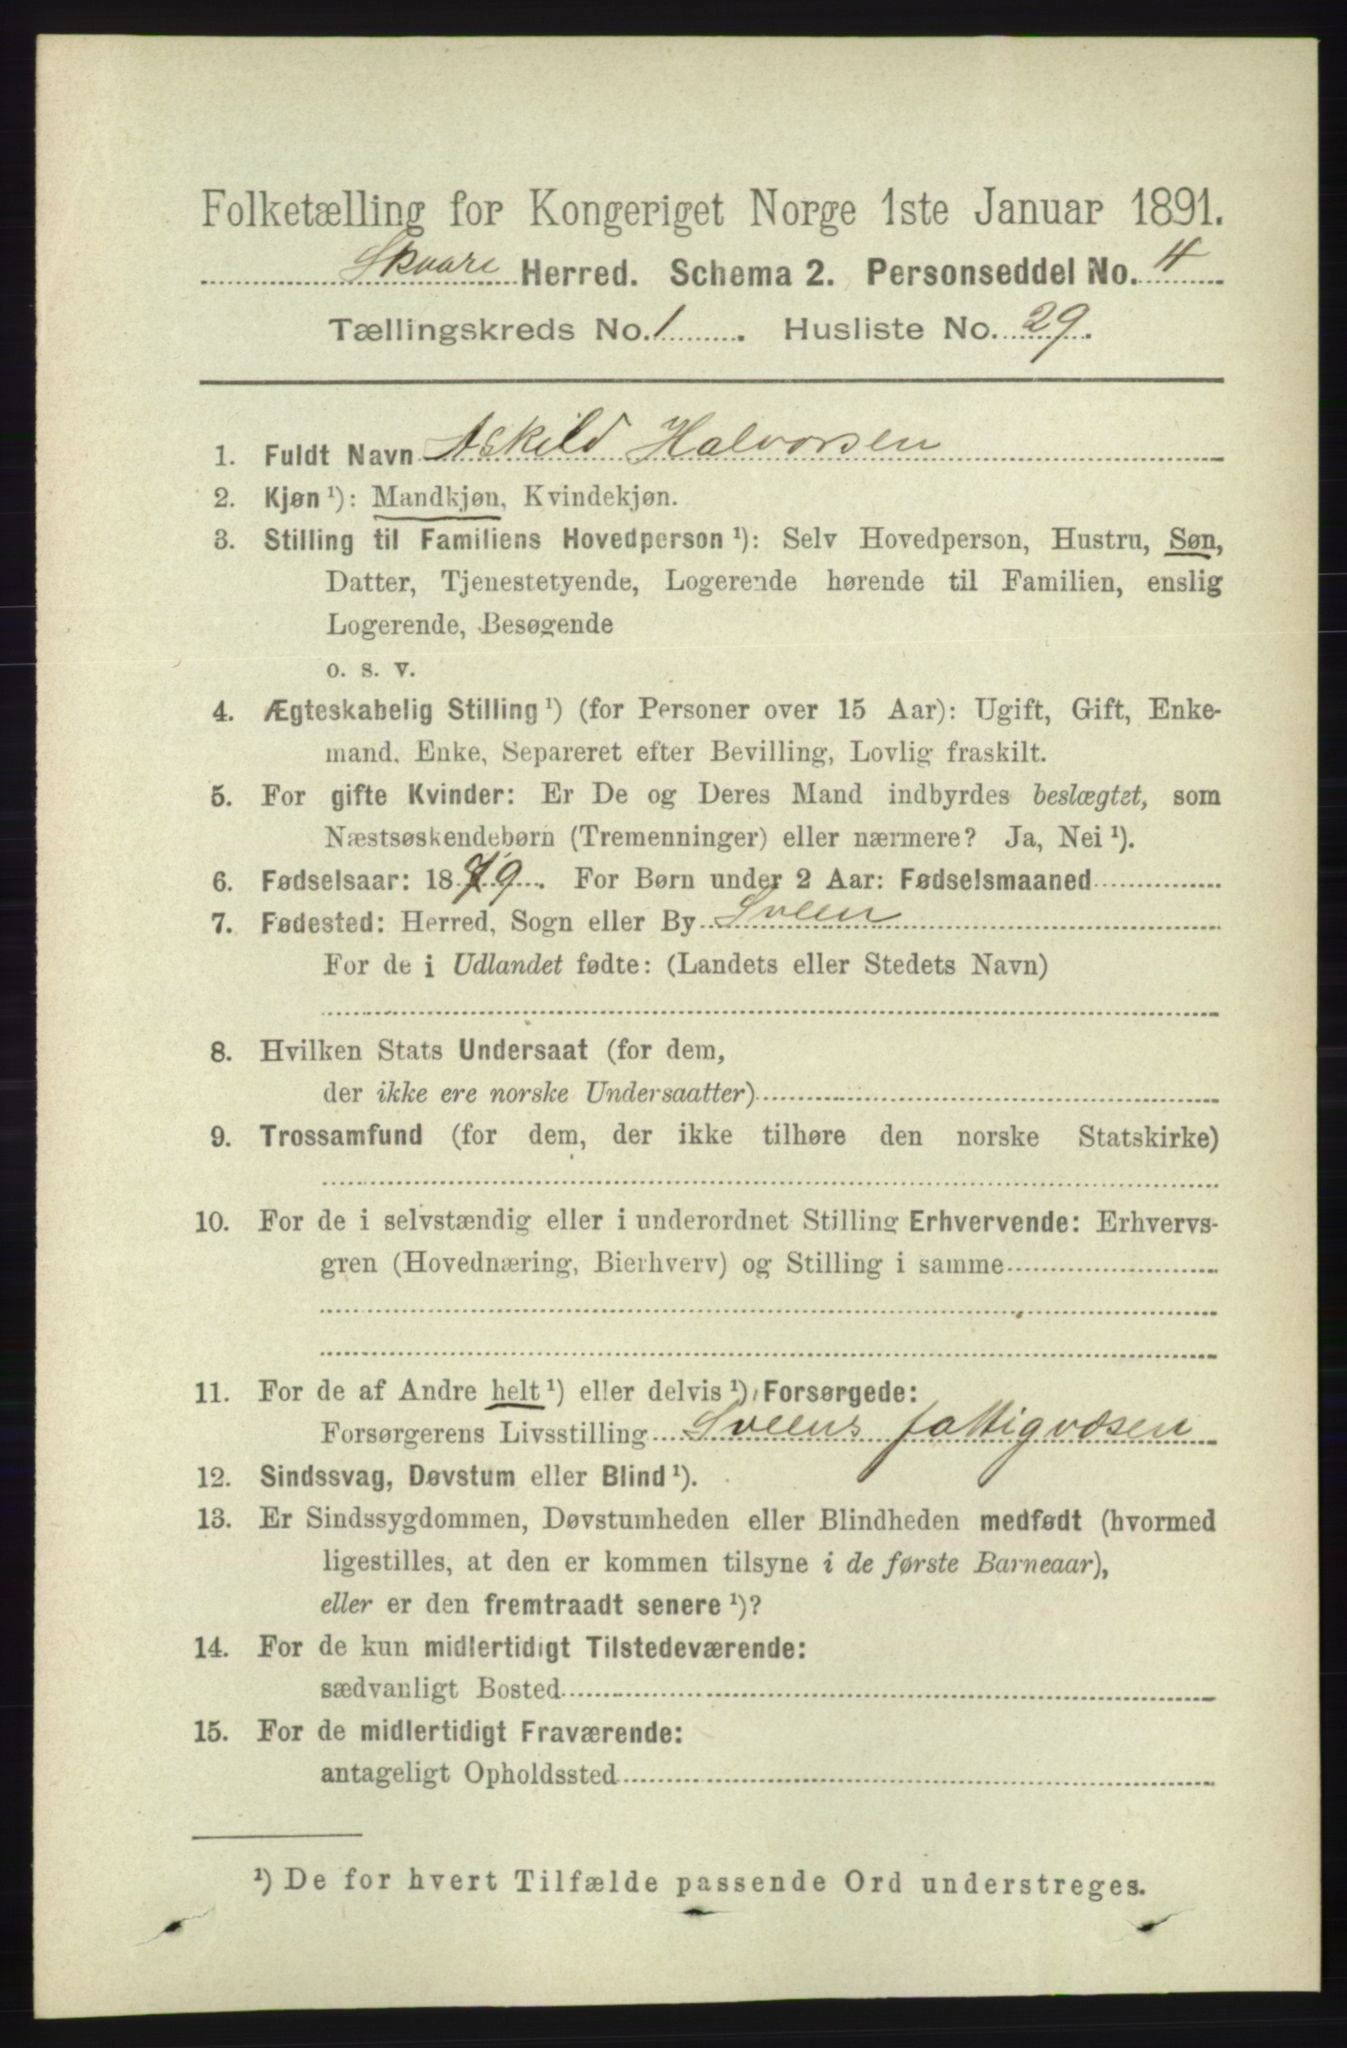 Folketælling for Kongeriget Norge 1ste Januar 1891.
Skaare Herred. Schema 2. Personseddel No. 4
Tællingskreds No. 1. Husliste No. 29.
1. Fuldt Navn Askild Halvorsen
2. Kjøn ¹): Mandkjøn, Kvindekjøn.
3. Stilling til Familiens Hovedperson ¹): Selv Hovedperson, Hustru, Søn,
Datter, Tjenestetyende, Logerende hørende til Familien, enslig
Logerende, Besøgende
o. s. v.
4. Ægteskabelig Stilling ¹) (for Personer over 15 Aar): Ugift, Gift, Enke-
mand, Enke, Separeret efter Bevilling, Lovlig fraskilt.
5. For gifte Kvinder: Er De og Deres Mand indbyrdes beslægtet, som
Næstsøskendebørn (Tremenninger) eller nærmere? Ja, Nei ¹).
6. Fødselsaar: 1879. For Børn under 2 Aar: Fødselsmaaned
7. Fødested: Herred, Sogn eller By Sveen
For de i Udlandet fødte: (Landets eller Stedets Navn)
8. Hvilken Stats Undersaat (for dem,
der ikke ere norske Undersaatter)
9. Trossamfund (for dem, der ikke tilhøre den norske Statskirke)
10. For de i selvstændig eller i underordnet Stilling Erhvervende: Erhvervs-
gren (Hovednæring, Bierhverv) og Stilling i samme
11. For de af Andre helt ¹) eller delvis ¹) Forsørgede:
Forsørgerens Livsstilling Sveens fattigvæsen
12. Sindssvag, Døvstum eller Blind ¹).
13. Er Sindssygdommen, Døvstumheden eller Blindheden medfødt (hvormed
ligestilles, at den er kommen tilsyne i de første Barneaar),
eller er den fremtraadt senere ¹)?
14. For de kun midlertidigt Tilstedeværende:
sædvanligt Bosted
15. For de midlertidigt Fraværende:
antageligt Opholdssted
¹) De for hvert Tilfælde passende Ord understreges.